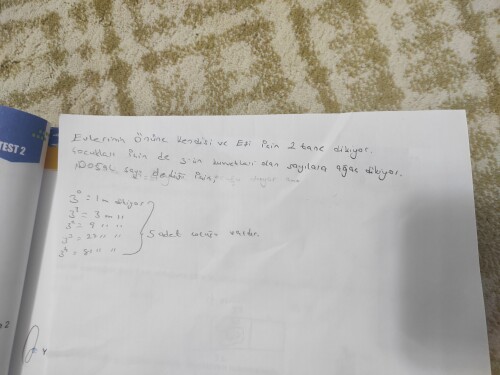 TEST 2
Evlerinin önüne kendisi ve Eşi için 2 tane dikiyor.
çocukları için de 3'ün kuvvetleri olan sayılara ağaç dikiyor.
Doğal sayı dediği için,
3⁰ = 1 m dikiyor
3¹ = 3 m "
3² = 9 " "
3³ = 27 " "
3⁴ = 81 " "
5 adet çocuğu vardır.
2